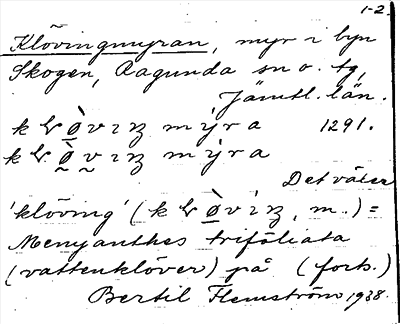 1-2.
Klövingmyran, myr i byn
Skogen, Ragunda sn o. tg,
Jämtl. län.
kɬø̀vıɳ mýra 1291.
kɬø̀vıɳ mýra
Det växer
'klöving' (kɬø̀víɳ, m.) =
Menyanthes trifoliata
(vattenklöver) på (forts.)
Bertil Flemström 1938.